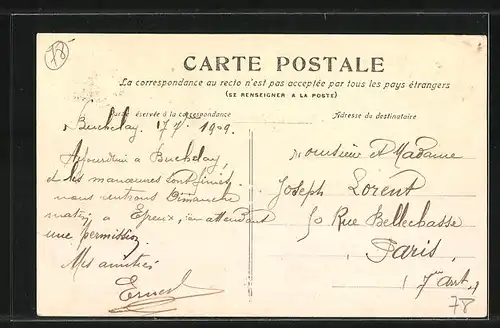 78
CARTE POSTALE
La correspondance au recto n'est pas acceptée par tous les pays étrangers
(SE RENSEIGNER A LA POSTE)
Partie réservée à la correspondance
Adresse du destinataire
Buchelay. 17 7. 1909.
Aujourd'hui a Buchelay,
et les manœuvres sont finies
nous rentrons Dimanche
matin a Evreux, en attendant
une permission
Mes amitiés
Ernest
Monsieur et Madame
Joseph Lorent
50 Rue Bellechasse
Paris.
7me arrt.
78